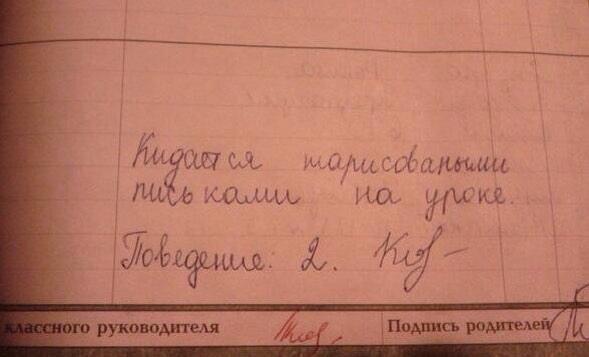 Кидается нарисоваными
письками на уроке.
Поведение: 2.
классного руководителя
Подпись родителей